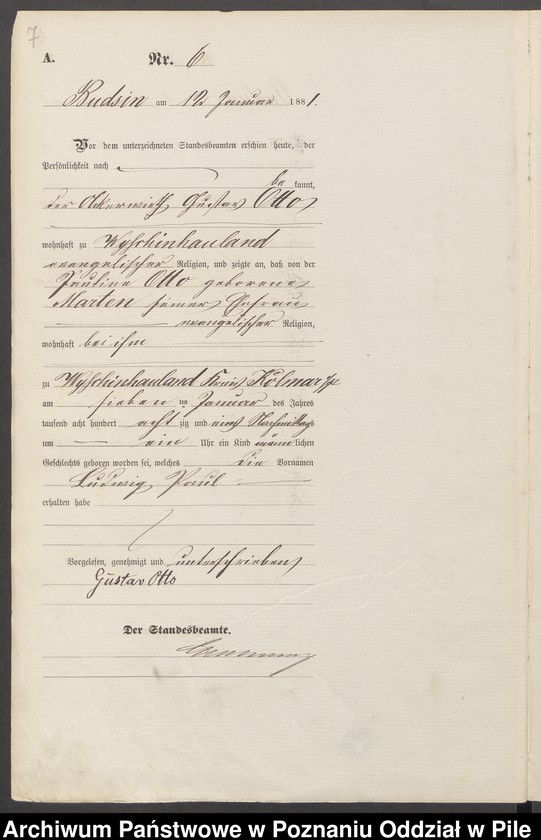 7
A.
Nr. 6
Budsin am 12 Januar 1881.
Vor dem unterzeichneten Standesbeamten erschien heute, der
Persönlichkeit nach
be kannt,
der Ackerwirth Gustav Otto
wohnhaft zu Wyschinhauland
evangelischer Religion, und zeigte an, daß von der
Pauline Otto geborene
Marten seiner Ehefrau
evangelischer Religion,
wohnhaft bei ihm
zu Wyschinhauland Kreis Kolmar i/P
am sieben ten Januar des Jahres
tausend acht hundert acht zig und eins Nachmittags
um ein Uhr ein Kind männlichen
Geschlechts geboren worden sei, welches die Vornamen
Ludwig Paul
erhalten habe
Vorgelesen, genehmigt und unterschrieben
Gustav Otto
Der Standesbeamte.
Archiwum Państwowe w Poznaniu Oddział w Pile